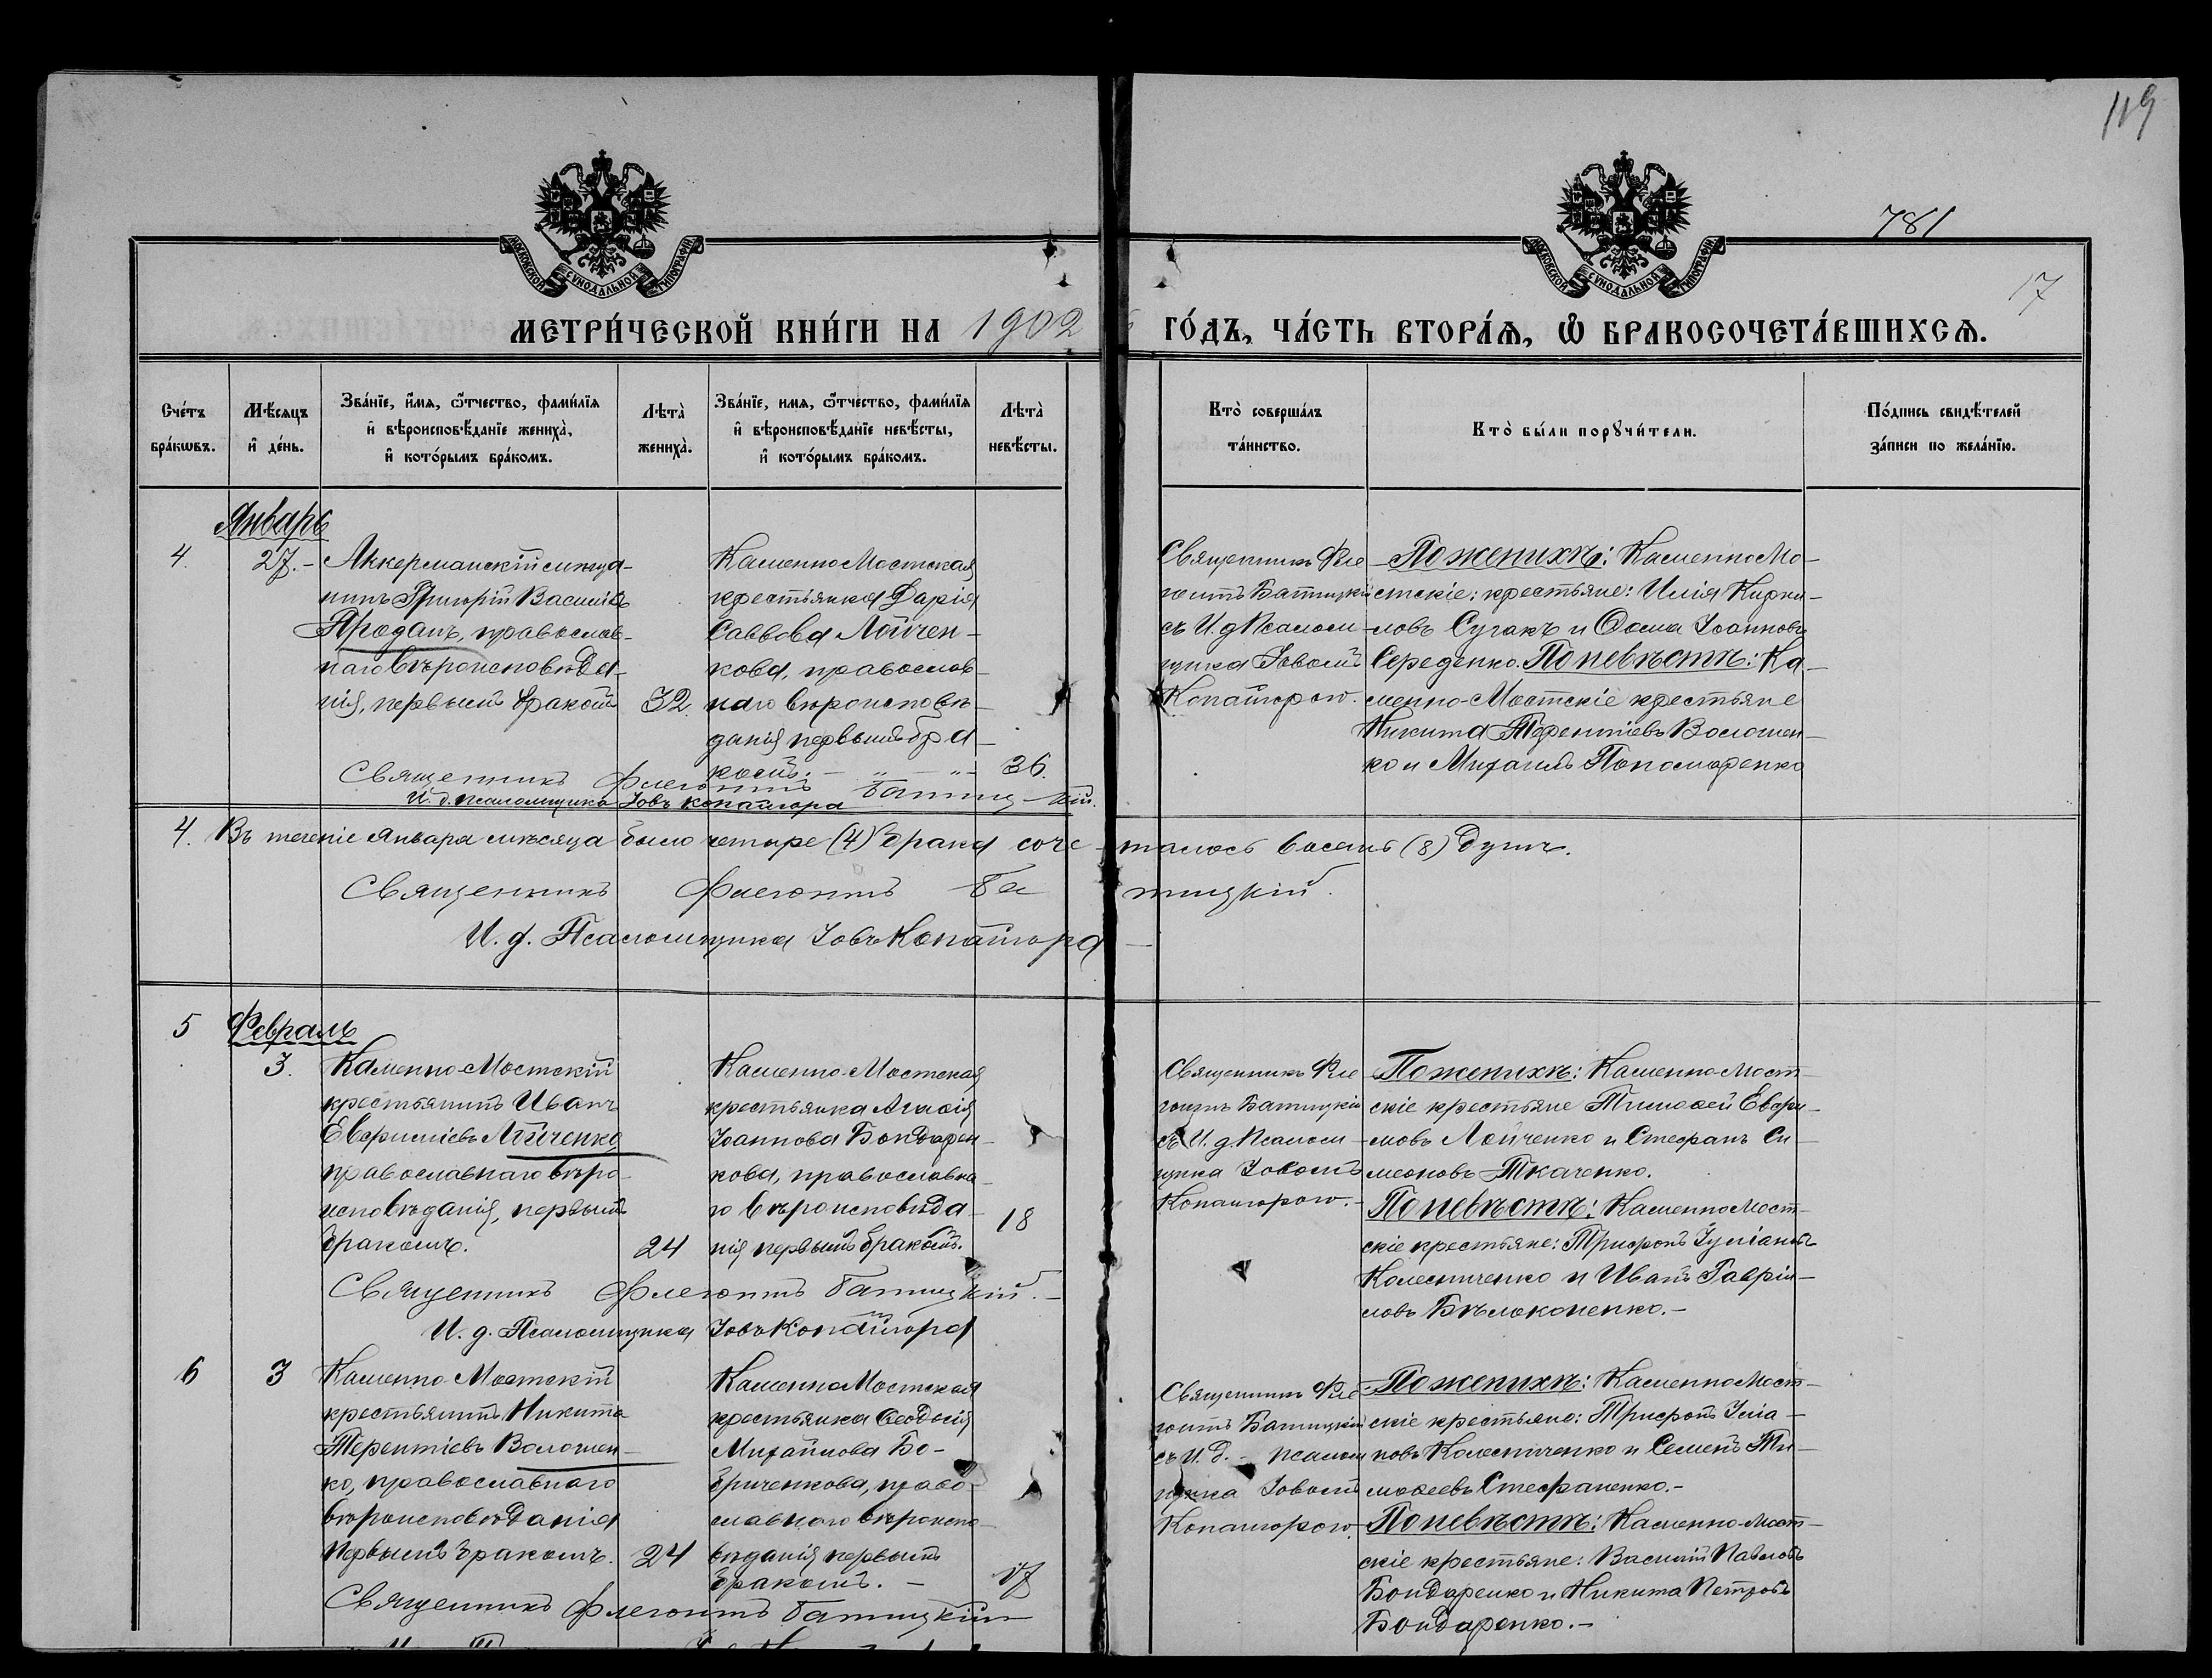 119
781
17
МОСКОВСКОЙ СѴНОДАЛЬНОЙ ТИПОГРАФІИ
МОСКОВСКОЙ СѴНОДАЛЬНОЙ ТИПОГРАФІИ
МЕТРИ́ЧЕСКОЙ КНИ́ГИ НА 1902 ГО́ДЪ, ЧА́СТЬ ВТОРА́Ѧ, Ѡ҆ БРАКОСОЧЕТА́ВШИХСѦ.
Сче́тъ
бра́кѡвъ.
Мѣ́сѧцъ
и҆ де́нь.
Зва́нїе, и҆́мѧ, ѻ҆́тчество, фами́лїѧ
и҆ вѣроисповѣ́данїе жениха̀,
и҆ кото́рымъ бра́комъ.
Лѣта̀
жениха̀.
Зва́нїе, имѧ, ѻ҆́тчество, фами́лїѧ
и҆ вѣроисповѣ́данїе невѣ́сты,
и҆ кото́рымъ бра́комъ.
Лѣта̀
невѣ́сты.
Кто̀ соверша́лъ
та́инство.
Кто̀ бы́ли порꙋчи́тели.
По́дпись свидѣ́телей
за́писи по жела́нїю.
Январь
4.
27.-
Аккерманскій мѣща-
нинъ Григорій Василіевъ
Проданъ, православ-
наго вѣроисповѣда-
нія, первымъ бракомъ
32.
Каменно Мостская
крестьянка Дарія
Саввова Лойчен-
кова, православ-
наго вѣроисповѣ-
данія первымъ бра-
комъ. - " - " -
36.
Священникъ Фле-
гонтъ Батицкій
съ И. д Псалом-
щика Іовомъ
Копайгорою.
По женихѣ: Каменно Мо-
стскіе: крестьяне: Илія Кири-
ловъ Сугакъ и Ѳома Іоанновъ
Середенко. По невѣстѣ: Ка-
менно-Мостскіе крестьяне
Никита Терентіевъ Волошен-
ко и Михаилъ Пономаренко
Священникъ Флегонтъ Батицкій.
И. д. псаломщика Іовъ Копайгора
4. Въ теченіе Января мѣсяца было четыре (4) брака соче-талось восемь (8) душъ.
Священникъ Флегонтъ Батицкій.
И. д. Псаломщика Іовъ Копайгора
5
Февраль
3.
Каменно-Мостскій
крестьянинъ Иванъ
Евфиміевъ Лойченко
православнаго вѣро-
исповѣданія, первымъ
бракомъ.
24
Каменно-Мостская
крестьянка Агафія
Іоаннова Бондарен-
кова, православна-
го вѣроисповѣда-
нія первымъ бракомъ.
18
Священникъ Фле
гонтъ Батицкій
съ И. д Псалом-
щика Іовомъ
Копайгорою.-
По женихѣ: Каменно-Мост-
скіе крестьяне Тимоѳей Евфи-
мовъ Лойченко и Стефанъ Си-
меоновъ Ткаченко.
По невѣстѣ: Каменно Мост-
скіе крестьяне: Трифонъ Іуліановъ
Колесниченко и Иванъ Гаврии-
ловъ Бѣлоконенко.-
Священникъ Флегонтъ Батицкій.-
И. д. Псаломщика Іовъ Копайгора
6
3
Каменно-Мостскій
крестьянинъ Никита
Терентіевъ Волошен-
ко, православнаго
вѣроисповѣданія
первымъ бракомъ.
24
Каменно Мостская
крестьянка Ѳеодосія
Михайлова Бо-
бриченкова, право-
славнаго вѣроиспо-
вѣданія первымъ
бракомъ. -
17
Священникъ Фле
гонтъ Батицкій
съ И. д. - псалом
щика Іовомъ
Копайгорою.
По женихѣ: Каменно Мост-
скіе крестьяне: Трифонъ Іулiа-
новъ Колесниченко и Семенъ Ти-
моѳеевъ Стефаненко.-
По невѣстѣ: Каменно-Мост-
скіе крестьяне: Василій Павловъ
Бондаренко и Никита Петровъ
Бондаренко.-
Священникъ Флегонтъ Батицкій